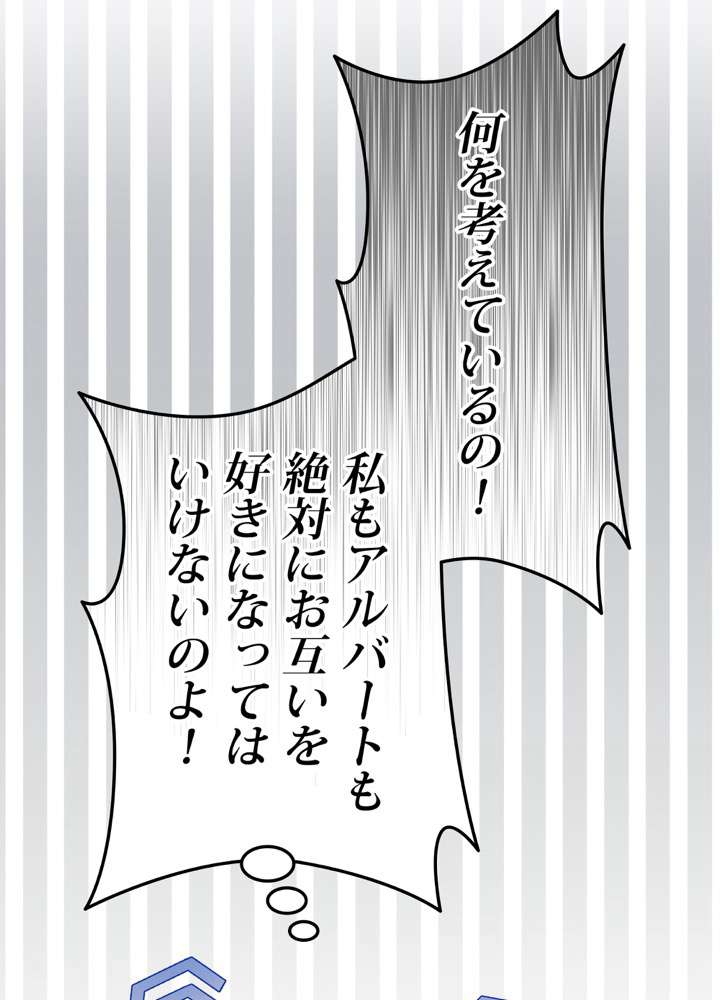 何を考えているの！
私もアルバートも
絶対にお互いを
好きになっては
いけないのよ！